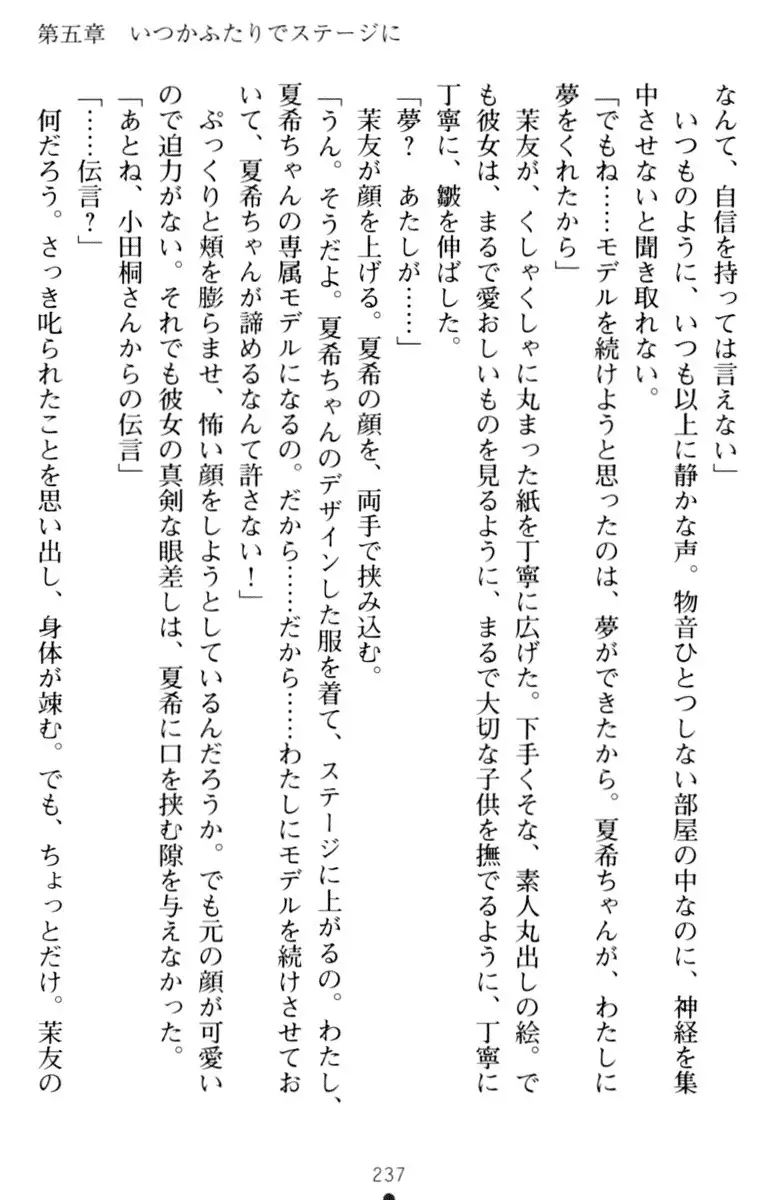 第五章　いつかふたりでステージに
なんて、自信を持っては言えない」
　いつものように、いつも以上に静かな声。物音ひとつしない部屋の中なのに、神経を集
中させないと聞き取れない。
「でもね……モデルを続けようと思ったのは、夢ができたから。夏希ちゃんが、わたしに
夢をくれたから」
　茉友が、くしゃくしゃに丸まった紙を丁寧に広げた。下手くそな、素人丸出しの絵。で
も彼女は、まるで愛おしいものを見るように、まるで大切な子供を撫でるように、丁寧に
丁寧に、皺を伸ばした。
「夢？　あたしが……」
　茉友が顔を上げる。夏希の顔を、両手で挟み込む。
「うん。そうだよ。夏希ちゃんのデザインした服を着て、ステージに上がるの。わたし、
夏希ちゃんの専属モデルになるの。だから……だから……わたしにモデルを続けさせてお
いて、夏希ちゃんが諦めるなんて許さない！」
　ぷっくりと頬を膨らませ、怖い顔をしようとしているんだろうか。でも元の顔が可愛い
ので迫力がない。それでも彼女の真剣な眼差しは、夏希に口を挟む隙を与えなかった。
「あとね、小田桐さんからの伝言」
「……伝言？」
　何だろう。さっき叱られたことを思い出し、身体が竦む。でも、ちょっとだけ。茉友の
237